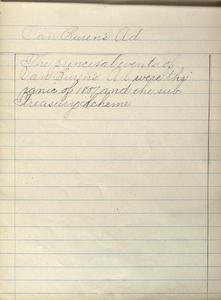 Van Buren's Ad.
The principal events of
Van Buren's Ad were the
panic of 1837 and the sub
Treasury scheme